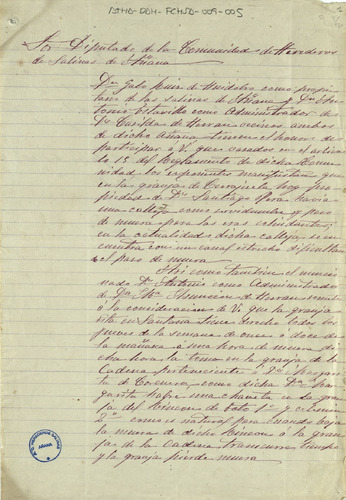 ATHA-DAH-FCHSD-009-005
Sor Diputado de la Comunidad de Herederos
de Salinas de Añana
Dn Galo Ruiz de Huidobro como propie
tario de las salinas de Añana y Dn An
tonio como Administrador de
Da Casilda de Herran vecinos ambos
de dicho Añana tienen el honor de
participar á V. que basados en el articu
lo 15 del Reglamento de dicha Comu
nidad los exponentes manifiestan que
en la granja de hoy pro
piedad de Dn Santiago habia
una calleja como servidumbre y paso
de muera para las eras
en la actualidad dicha calleja se en
cuentra con un canal estrecho dificultan
el paso de muera
Asi como tambien el mencio
nado Dn Antonio como Administrador
de Da Ma Asuncion de Herran somete
á la consideracion de V. que la granja
sita en Santana tiene derecho todos los
jueves de la semana de once á doce de
la mañana á una hora de muera di
cha hora la toma en la granja de la
Cadena perteneciente á Da Marga
rita de como dicha Da Mar
garita hafre una chaneta en la gran
ja del Rincon de Foto 1o y
2o como es natural que cuando baja
la muera de dicho Rincon á la gran
ja de la Cadena transcurre tiempo
y la granja pierde muera
AÑANA